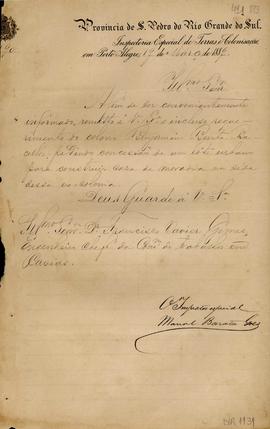 Provincia de S. Pedro do Rio Grande do Sul.
Inspetoria Especial de Terras e Colonisação
em Porto Alegre, 12 de Março de 188
Illmo Snr
A fim de ser convenientemente
informado, remetto a V. Sa o incluso reque-
rimento do colono
pedindo concessão de um lote urbano
para construir casa de moradia na séde
dessa colonia.
Deus Guarde a V. Sa
Illmo Snr. Dr. Francisco Xavier Gomes,
Engenheiro Chefe da Commissão de trabalhos em
Caxias.
O Inspector especial
Manoel Barata Góes